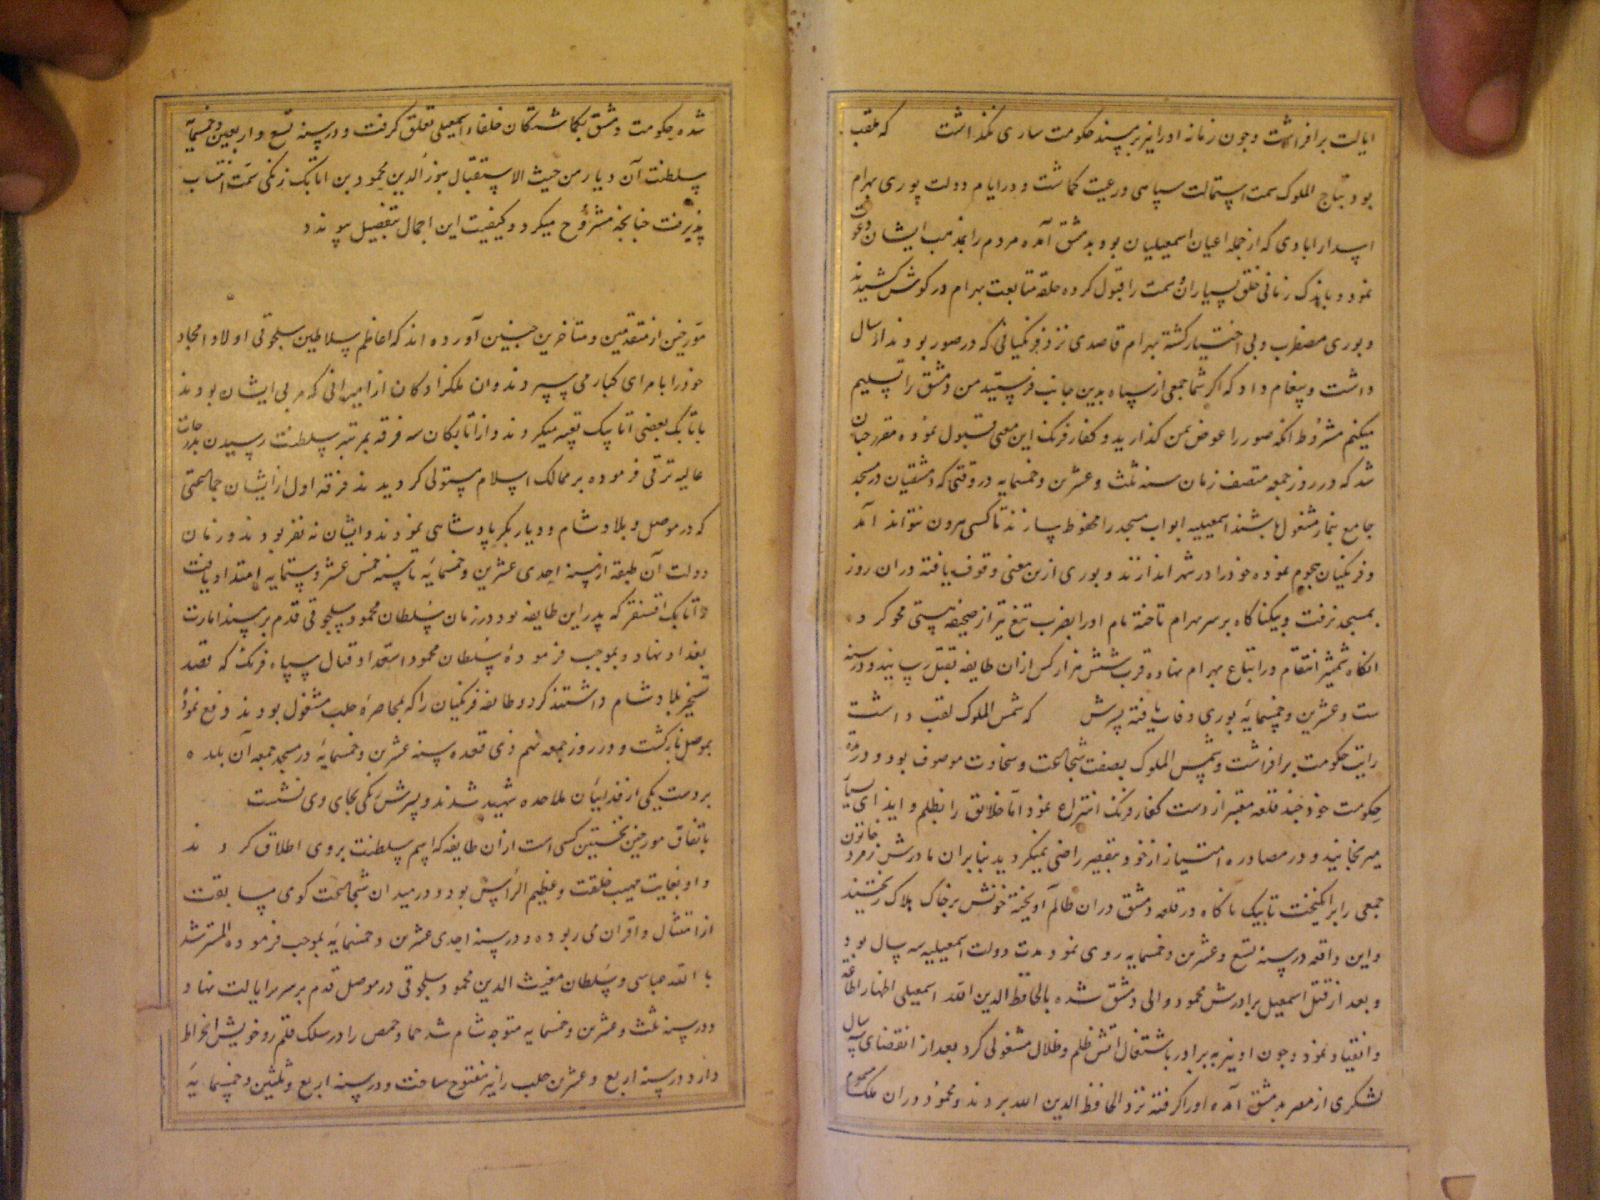 ایالت برافراشت و چون زمانه او را نیز بر مسند حکومت ساری نگذاشت که ملقب
بود بتاج الملوک همت باستمالت سپاهی و رعیت گماشت و در ایام دولت بوری بهرام
ابادی که از جمله اعیان اسمعیلیان بود بدمشق آمده مردم را بمذهب ایشان دعوت
نمود و باندک زمانی خلق بسیار ازو سمت را قبول کرده حلقه متابعت بهرام در گوش کشیدند
و بوری مضطرب و بی اختیار گشته بهرام قاصدی نزد فرنگیانی که در صور بودند ارسال
داشت و پیغام داد که اگر شما جمعی از سپاه بدین جانب فرستید من دمشق را تسلیم
میکنم مشروط آنکه صور را عوض بمن گذارید و کفار فرنگ این معنی قبول نموده مقرر چنان
شد که در روز جمعه منتصف رمان سنه ثلث و عشرین و خمسمایه در وقتی که دمشقیان در مسجد
جامع بنماز مشغول باشند اسمعیلیه ابواب مسجد را مضبوط سازند تا کسی بیرون نتواند آمد
و فرنگیان هجوم نموده خود را در شهر اندازند و بوری ازین معنی وقوف یافته در ان روز
بمسجد نرفت و بیکناگاه بر سر بهرام تاخته نام او را بضرب تیغ تیز از صحیفه هستی محو کرد
انگاه شمشیر انتقام در اتباع بهرام نهاده قرب شش هزار کس از ان طایفه بقتل رسانید و در سنه
ست و عشرین و خمسمایه بوری وفات یافته پسرش که شمس الملوک لقب داشت
رایت حکومت برافراشت و شمس الملوک بصفت شجاعت و سخاوت موصوف بود و در مدة
حکومت خود چند قلعه معتبر از دست کفار فرنگ انتزاع نمود اما خلایق را بظلم و ایذای
میرنجانید و در مصادره امتیاز از خود بتقصیر راضی نمیگردید بنابران مادرش زمرد خاتون
جمعی را برانگیخت تا بیک ناگاه در قلعه دمشق در ان ظالم آویخته خونش بر خاک هلاک ریختند
و این واقعه در سنه تسع و عشرین و خمسمایه روی نمود مدت دولت اسمعیلیه سه سال بود
و بعد از قتل اسمعیل برادرش محمود والی دمشق شده بالحافظ الدین الله اسمعیلی اظهار اطاعه
و انقیاد نمود و چون او نیز به برادر باشتغال آتش ظلم و ظلال مشغولی کرد بعد از انقضای سه سال
لشکری از مصر بدمشق آمده او را گرفته نزد الحافظ الدین الله بردند و محمود در ان ملک
شده حکومت دمشق بگماشتگان خلفاء اسمعیلی تعلق گرفت و در سنه تسع و اربعین و خمسمایه
سلطنت آن دیار من حیث الاستقبال بنورالدین محمود بن اتابک زنگی سمت انتساب
پذیرفت چنانچه مشروح میگردد و کیفیت این اجمال بتفصیل پیوندد
مورخین از متقدمین و متاخرین چنین آورده اند که اعاظم سلاطین سلجوقی اولاد امجاد
خود را بامرای کبار می سپردند و ان ملکزادگان از امیرانی که مربی ایشان بودند
باتابک بعضی اتابیک تعبیر میکردند و از اتابکان سه فرقه بمرتبه سلطنت رسیدن بدرجات
عالیه ترقی فرموده بر ممالک اسلام مستولی گردیدند فرقه اول از ایشان جماعتی
که در موصل و بلاد شام و دیار بکر پادشاهی نمودند و ایشان نه نفر بودند و زمان
دولت آن طبقه از سنه احدی عشرین و خمسمایه تا سنه خمس عشر و ستمایه امتداد یافت
و اتابک اقسنقر که پدر این طایفه بود در زمان سلطان محمود سلجوقی قدم بر مسند امارت
بغداد نهاد و بموجب فرموده سلطان محمود استعداد قتال سپاه فرنگ که قصد
تسخیر بلاد شام داشتند کرد و طائفه فرنگیان را که بمحاصره حلب مشغول بودند دفع نموده
بموصل بازگشت و در روز جمعه نهم ذی قعده سنه عشرین و خمسمایه در مسجد جمعه آن بلده
بر دست یکی از فدائیان ملاحده شهید شد و پسرش زنکی بجای وی نشست
باتفاق مورخین نخستین کسی است از ان طایفه که اسم سلطنت بر وی اطلاق کردند
و او بغایت مهیب خلقت و عظیم الرأس بود و در میدان شجاعت گوی مسابقت
از امثال و اقران می ربوده و در سنه احدی عشرین و خمسمایه بموجب فرموده المسترشد
بالله عباسی و سلطان مغیث الدین محمود سلجوقی در موصل قدم بر سریر ایالت نهاد
و در سنه ثلث و عشرین و خمسمایه متوجه شام شد حما و حمص را در سلک قلمرو خویش انخراط
داد و در سنه اربع و عشرین حلب را نیز مفتوح ساخت و در سنه اربع و ثلثین و خمسمایه